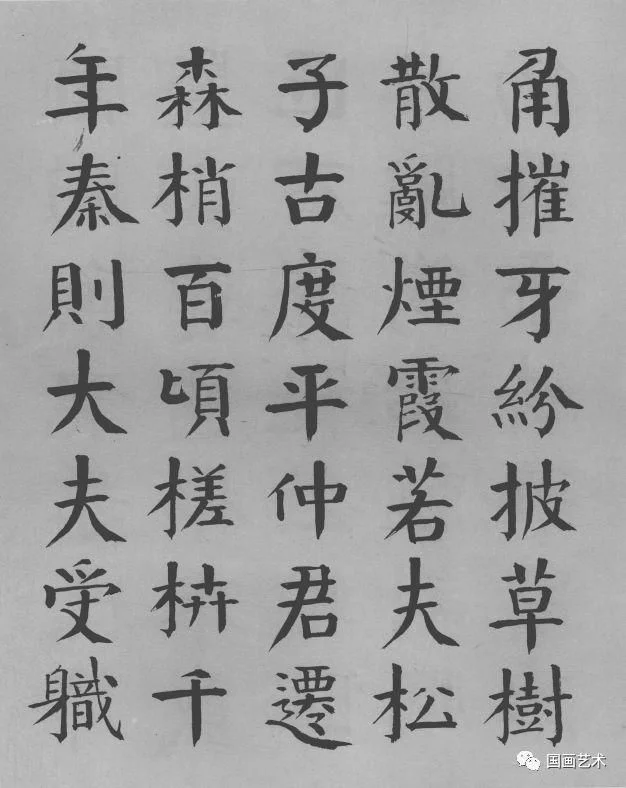 角摧牙紛披草樹
散亂煙霞若夫松
子古度平仲君遷
森梢百頃槎枿千
年秦則大夫受職
国画艺术